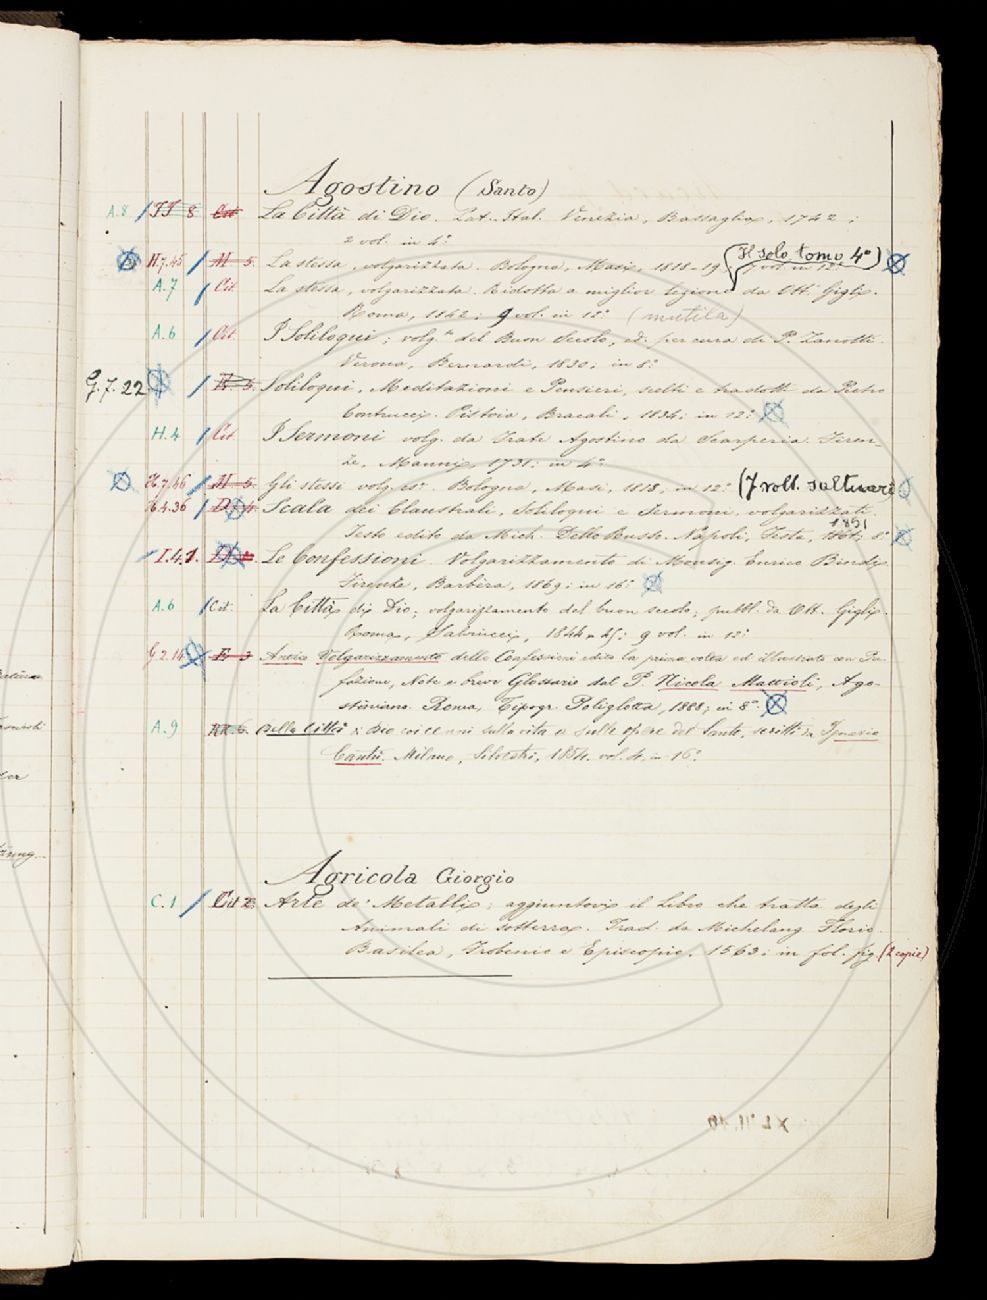 Agostino (Santo)
A.8 TT 8 Cit La Città di Dio. Lat.-Ital. Venezia, Bassaglia, 1742;
2 vol. in 4°.
H.7.45 M 5. La stessa, volgarizzata. Bologna, Masi, 1818-19; 9 vol. in 12° (Il solo tomo 4°)
A.7 Cit. La stessa, volgarizzata. Ridotta a miglior lezione da Ott. Gigli.
Roma, 1842; 9 vol. in 12° (mutila)
A.6 Cit. I Soliloqui; volg.to del Buon Secolo, ed. per cura di P. Zanotti.
Verona, Bernardi, 1830; in 8°
G.7.22 Soliloqui, Meditazioni e Pensieri, scelti e tradotti da Pietro
Contrucci. Pistoia, Bracali, 1834; in 12°
H.4 Cit. I Sermoni volg. da Frate Agostino da Scarperia. Firen-
ze, Manni, 1731; in 4°
H.7.46 M 5. Gli stessi volg. Bologna, Masi, 1818; in 12° (7 voll. saltuari)
H.4.36 Scala dei Claustrali, Soliloqui e Sermoni, volgarizzati.
Testo edito da Mich. Dello Russo. Napoli, 1851 8°
I.41. Le Confessioni. Volgarizzamento di Monsig. Enrico Bindi.
Firenze, Barbèra, 1869; in 16°
A.6 Cit. La Città di Dio; volgarizzamento del buon secolo; pubbl. da Ott. Gigli.
Roma, Salviucci, 1844-45; 9 vol. in 12°
G.2.14 E 3 Antico Volgarizzamento delle Confessioni edito la prima volta ed illustrato con Pre-
fazione, Note e breve Glossario dal P. Nicola Mattioli, Ago-
stiniano. Roma, Tipogr. Poliglotta, 1888; in 8°
A.9 Della Città di Dio coi cenni sulla vita e sulle opere del Santo, scritti da Ignazio
Cantù. Milano, Silvestri, vol. 4. in 16°.
Agricola Giorgio
C.1 Cit 2. Arte de' Metalli; aggiuntovi il Libro che tratta degli
Animali di sotterra. Trad. da Michelang. Florio.
Basilea, Frobenio e Episcopio, 1563; in fol. fig. (2 copie)